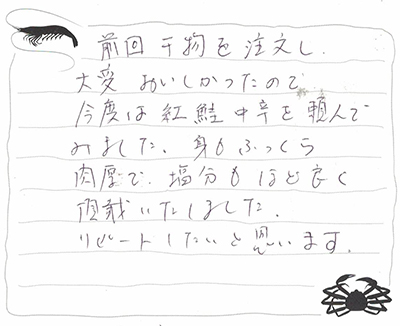 前回 干物を注文し、
大変 おいしかったので
今度は紅鮭中辛を頼んで
みました、身もふっくら
肉厚で、塩分もほど良く
頂戴いたしました、
リピートしたいと思います。